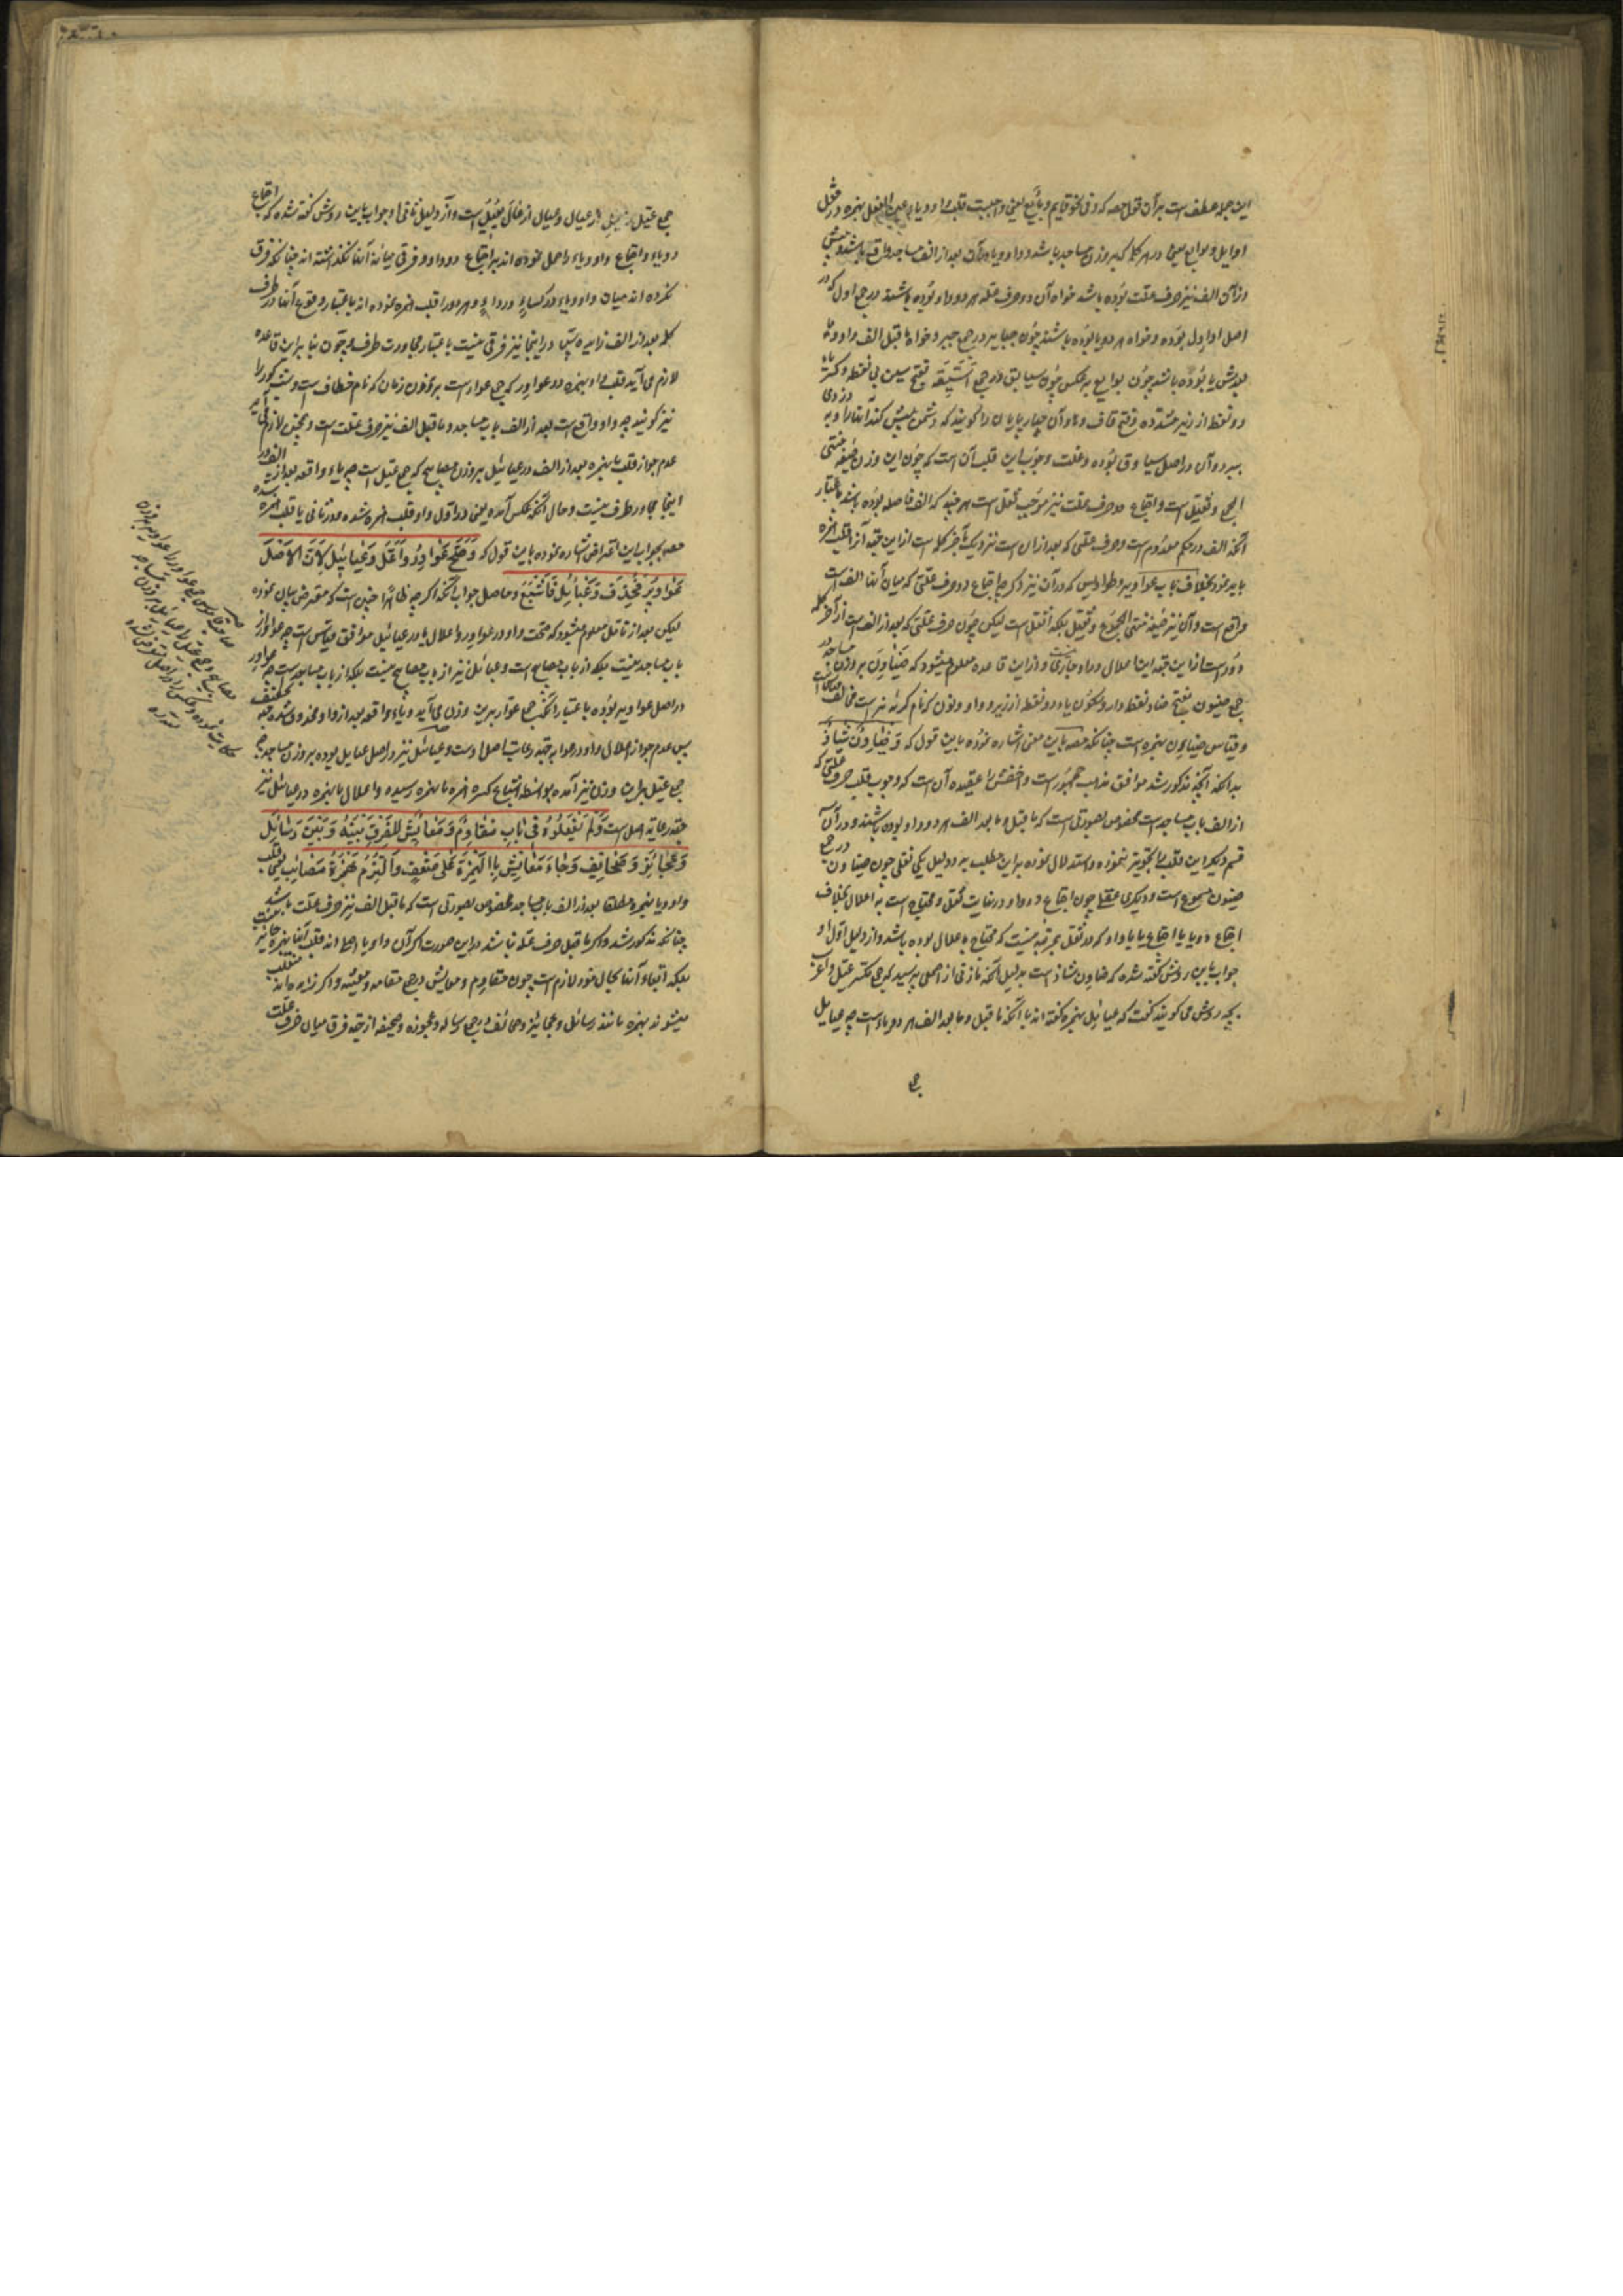 این جمله عطف است بر آن قول مصه که و فی نحو قایم و بایع یعنی واجبست قلب واو و یاء عین الفعل بهمزه در مثل
اوایل و بوایع یعنی در هر کلمه که بر وزن مساجد باشد و واو و یا در آن بعد از الف مساجد واقع باشد و پیش
از آن الف نیز حرف علت بوده باشد خواه آن دو حرف عله هر دو واو بوده باشند در جمع اول که در
اصل اواول بوده و خواه هر دو یا بوده باشند چون جیایر در جمع جیر و خواه ما قبل الف واو و ما
بعدش یا بوده باشد چون بوایع به عکس چون سیایق در جمع سیقه بفتح سین بی نقطه و کسر یاء
دو نقطه از زیر مشدده و فتح قاف و ها و آن چهارپایان را گویند که دشمن پیش کند آنها را و به دزدی
ببرد و آن در اصل سیاوق بوده و علت وجوب این قلب آن است که چون این وزن صیغه منتهی
الجموع و ثقیل است و اجتماع دو حرف علت نیز موجب ثقل است هر چند که الف فاصله بوده باشد باعتبار
آنکه الف در حکم معدوم است و حرف علتی که بعد از آن است نزدیک بآخر کلمه است از این جهة آنرا قلب بهمزه
باید نمود بخلاف باب عواویر و طواویس که در آن نیز اگر چه اجتماع دو حرف علتی که میان آنها الف است
واقع است و آن نیز صیغه منتهی الجموع و ثقیل بلکه اثقل است لیکن چون حرف علتی که بعد از الف است از آخر کلمه
دور است از این جهة این اعلال در او جاری نیست و از این قاعده معلوم میشود که ضیاون بر وزن مساجد در
جمع ضیون بفتح ضاد نقطه دار و سکون یاء دو نقطه از زیر و واو و نون که نام گربه نر است مخالف قیاس است
و قیاس ضیائن بهمزه است چنانکه مصه باین معنی اشاره نموده باین قول که وَضَیَاوِنُ شَاذٌّ
بدانکه آنچه مذکور شد موافق مذهب جمهور است و اخفش را عقیده آن است که وجوب قلب حرف علتی که
از الف باب مساجد است مخصوص بصورتی است که ما قبل و ما بعد الف هر دو واو بوده باشند و در آن
قسم دیگر این قلب را تجویز ننموده و استدلال نموده بر این مطلب به دو دلیل یکی نقلی چون ضیاون در جمع
ضیون مسموع است و دیگری عقلی چون اجتماع دو واو در غایت ثقل و محتاج است به اعلال بخلاف
اجتماع دو یا یا اجتماع یا با واو که در ثقل بمرتبه نیست که محتاج باعلال بوده باشد و از دلیل اول او
جواب باین روش گفته شده که ضیاون شاذ است بدلیل آنکه مازنی از اصمعی پرسید که جمع مکسر عیل را عرب
بچه روش می گویند گفت که عیائل بهمزه گفته اند با آنکه ما قبل و ما بعد الف هر دو یاء است چه عیایل
جمع عیل از عیال و عیال از عال یعیل است و از دلیل ثانی او جواب باین روش گفته شده که اجتماع
دو یاء و اجتماع واو و یاء را حمل نموده اند بر اجتماع دو واو و فرقی میانه آنها نگذاشته اند چنانکه فرق
نکرده اند میان واو و یاء در کساء و رداء و هر دو را قلب بهمزه نموده اند باعتبار وقوع آنها در طرف
کلمه بعد از الف زایده پس در اینجا نیز فرقی نیست باعتبار مجاورت طرف و چون بنا بر این قاعده
لازم می آید قلب واو بهمزه در عواور که جمع عوار است بر وزن زمان که نام خطاف است و شبپره کور را
نیز گویند چه واو واقع است بعد از الف باب مساجد و ما قبل الف نیز حرف علت است و همچنین لازم می آید
عدم جواز قلب یا بهمزه بعد از الف در عیائیل بر وزن مصابیح که جمع عیل است چه یاء واقعه بعد از الف در
اینجا مجاور طرف نیست و حال آنکه عکس آمده یعنی در اول واو قلب بهمزه نشده و در ثانی یا قلب بهمزه شده
مصه بجواب این اعتراض اشاره نموده باین قول که وَصَحَّ عَوَاوِرُ وَأُعِلَّ عَیَائِیلُ لِأَنَّ الْأَصْلَ
عَوَاوِیرُ فَحُذِفَ وَعَیَائِلُ فَأُشْبِعَ و حاصل جواب آنکه اگر چه ظاهرا چنین است که معترض بیان نموده
لیکن بعد از تأمل معلوم میشود که صحت واو در عواور و اعلال یا در عیائیل موافق قیاس است چه عواور از
باب مساجد نیست بلکه از باب مصابیح است و عیائیل نیز از باب مصابیح نیست بلکه از باب مساجد است چه عواور
در اصل عواویر بوده باعتبار آنکه جمع عوار برین وزن می آید و یاء واقعه بعد از واو محذوف شده جهة تخفیف
پس عدم جواز اعلال واو در عواور جهة رعایت اصل اوست و عیائیل نیز در اصل عیایل بوده بر وزن مساجد چه
جمع عیل برین وزن نیز آمده بواسطه اشباع کسره همزه یا بهمزه رسیده و اعلال یا بهمزه در عیائیل نیز
جهة رعایة اصل است وَلَمْ یَفْعَلُوهُ فِی بَابِ مَقَاوِمَ وَمَعَایِشَ لِلْفَرْقِ بَیْنَهُ وَبَیْنَ رَسَائِلَ
وَعَجَائِزَ وَصَحَائِفَ وَجَاءَ مَعَائِشُ بِالْهَمْزَةِ عَلَی ضَعْفٍ وَالْتُزِمَ هَمْزَةُ مَصَائِبَ یعنی قلب
واو و یا بهمزه مطلقا بعد از الف باب مساجد مخصوص بصورتی است که ما قبل الف نیز حرف علت باشد
چنانکه مذکور شد و اگر ما قبل حرف عله نباشد در این صورت اگر آن واو یا اصلی اند قلب آنها بهمزه جایز نیست
بلکه ابقاء آنها بحال خود لازم است چون مقاوم و معایش در جمع مقامه و معیشه و اگر زایده اند منقلب
میشوند بهمزه مانند رسائل و عجائز و صحائف در جمع رساله و عجوزه و صحیفه از جهة فرق میان حرف علت
جی